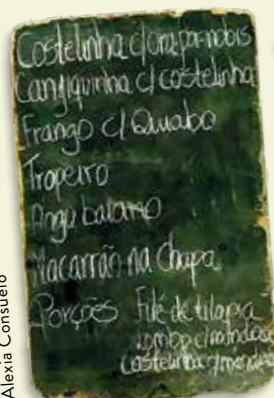 Costelinha c/ ora-pro-nobis
Canjiquinha c/ costelinha
Frango c/ Quiabo
Tropeiro
Angu baiano
Macarrão na Chapa
Porções Filé de tilapia
Lombo c/ mandioca
Costelinha c/ mandioca
Alexia Consuelo